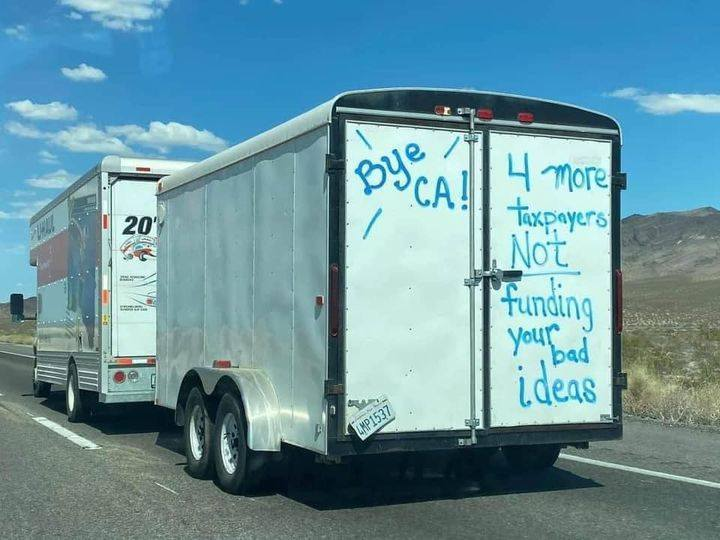 UHAUL
20'
Bye
CA!
4 more
taxpayers
Not
funding
your bad
ideas
4MP1537